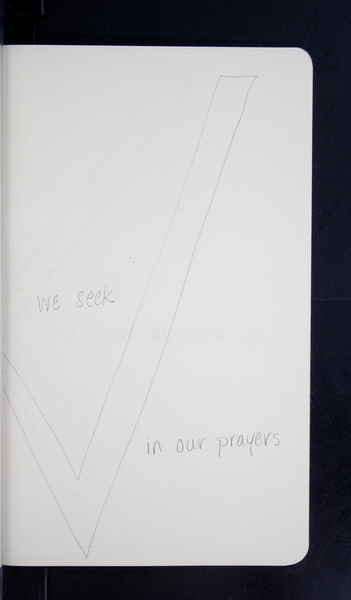 we seek
in our prayers